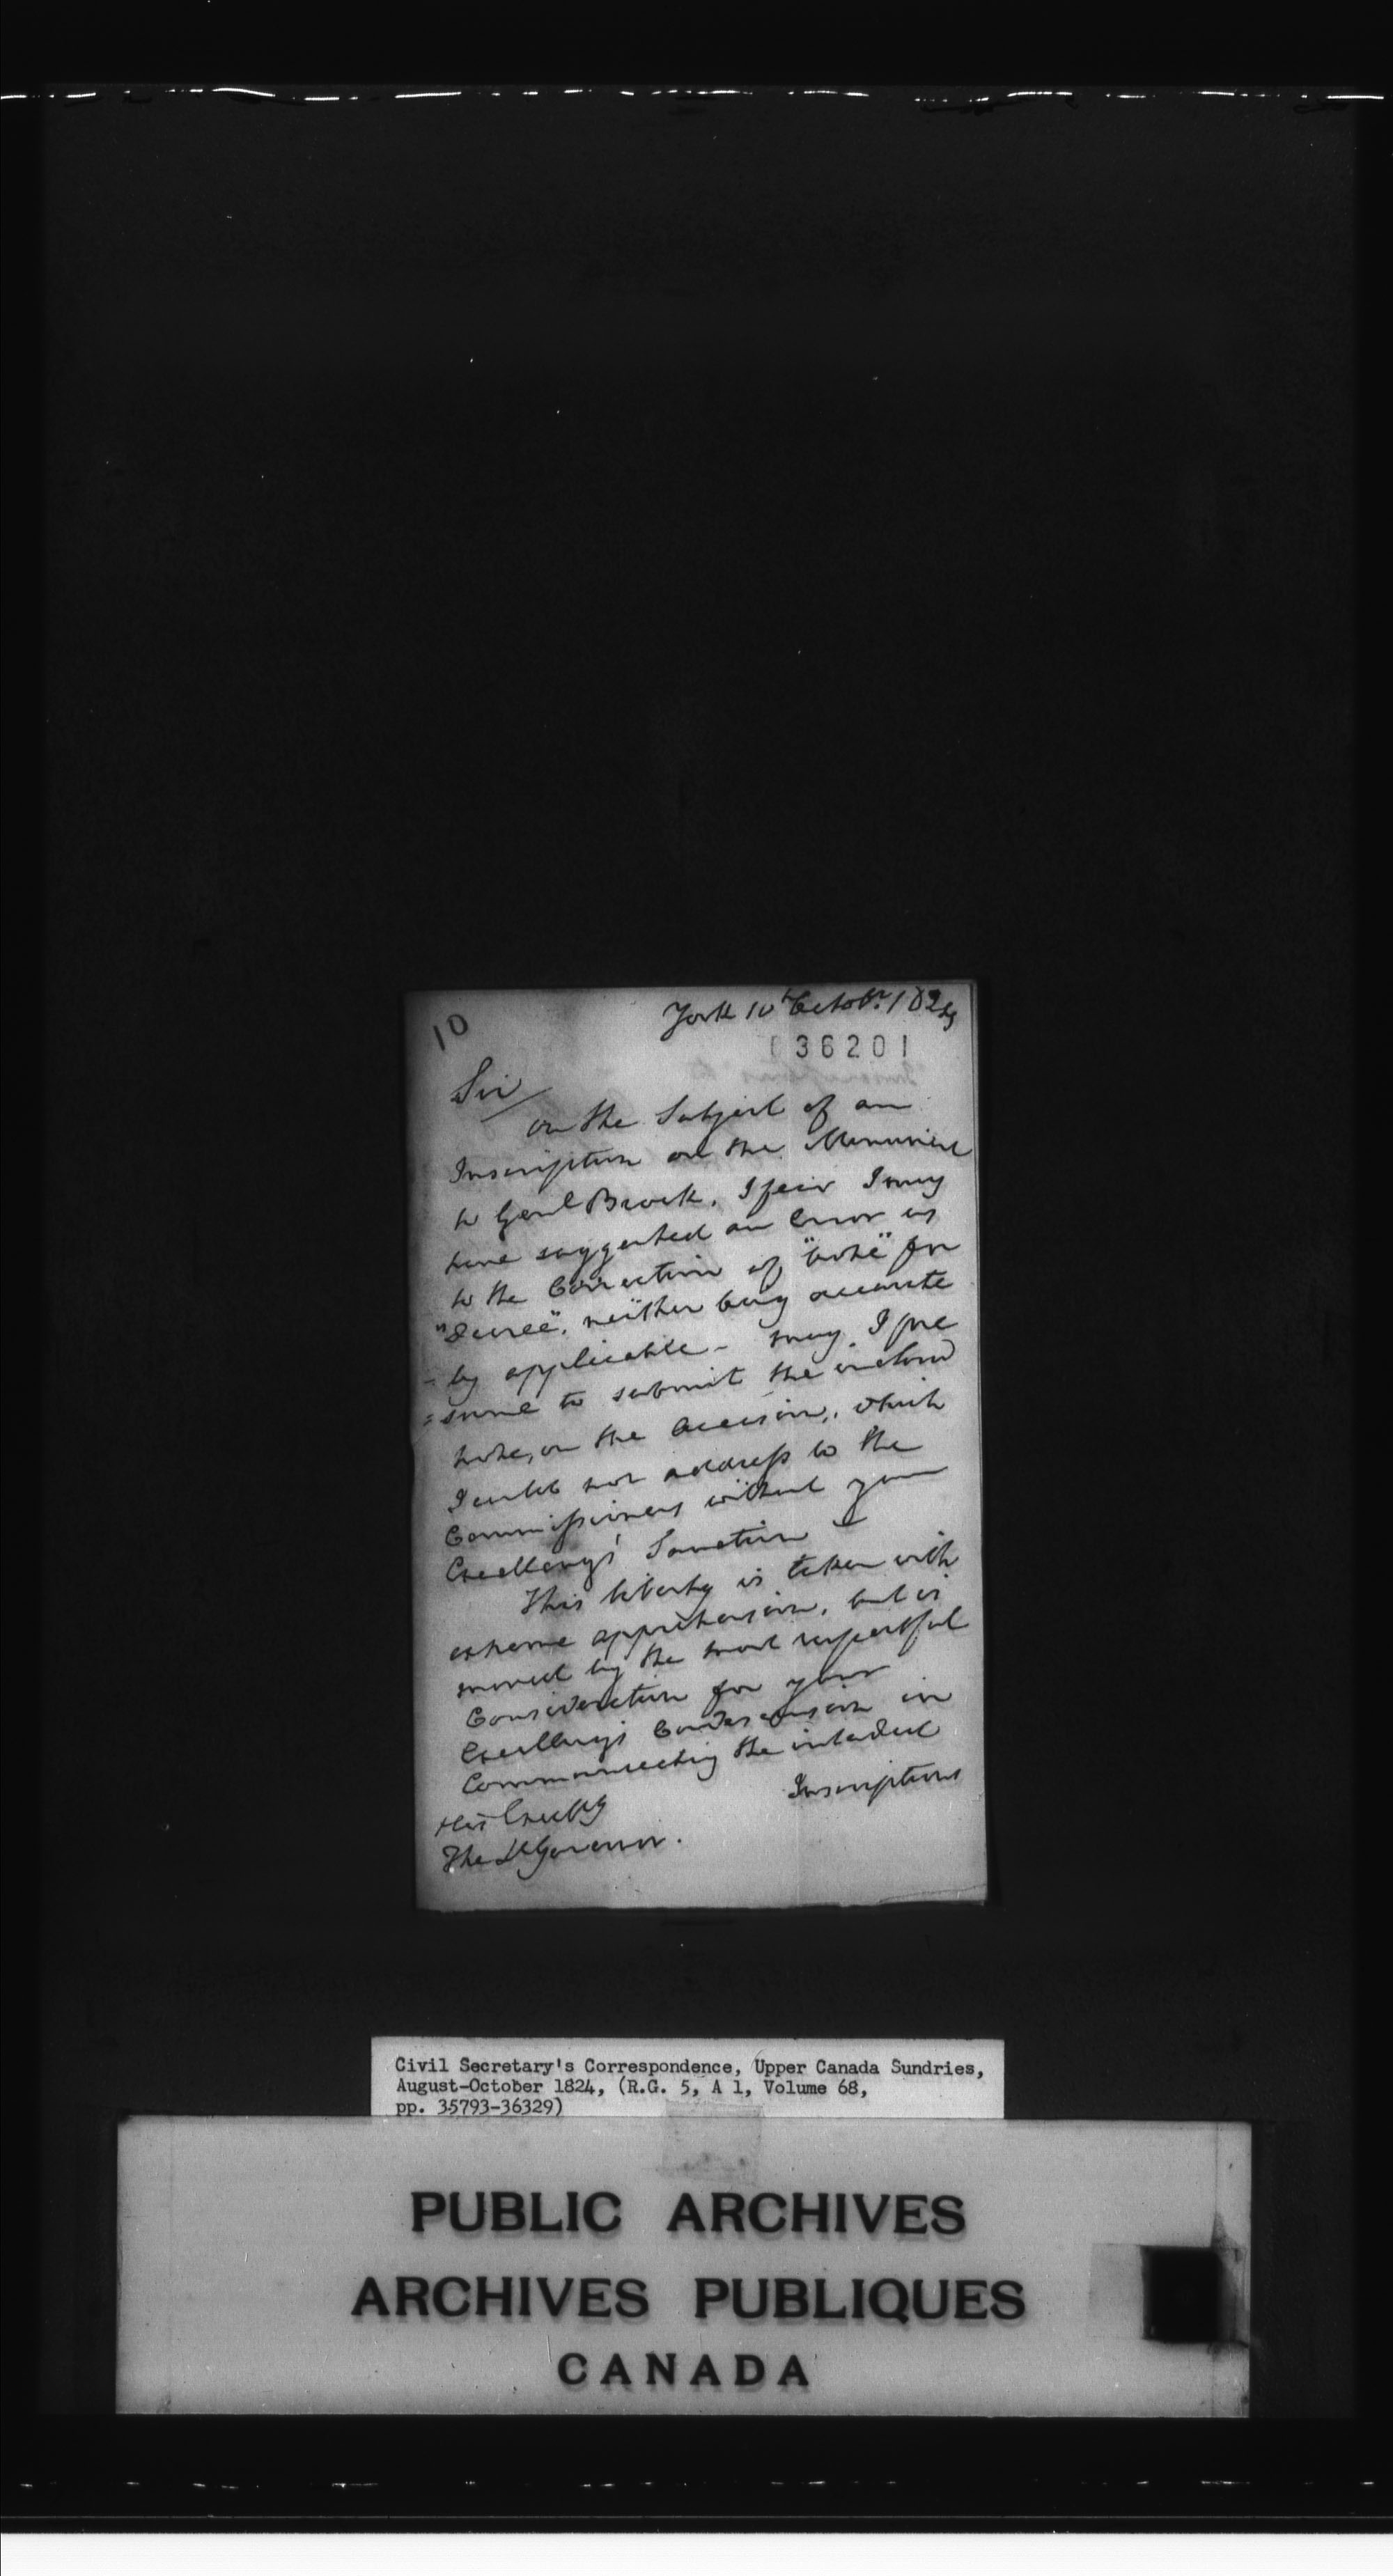 10
York 10th Octobr. 1824
36201
Sir
On the Subject of an
Inscription on the Monument
to Genl Brock, I fear I may
have suggested an Error as
to the Correction of "vote" for
"decree", neither being accurate
- ly applicable - may I pre
= sume to submit the inclosed
note, on the occasion, which
I could not address to the
Commissioners without your
Excellency's Sanction -
This liberty is taken with
extreme apprehension, but is
moved by the most respectful
Consideration for your
Excellency's Condescension in
Communicating the intended
Inscriptions
His Excelly
The Lt Governor.
Civil Secretary's Correspondence, Upper Canada Sundries,
August-October 1824, (R.G. 5, A 1, Volume 68,
pp. 35793-36329)
PUBLIC ARCHIVES
ARCHIVES PUBLIQUES
CANADA